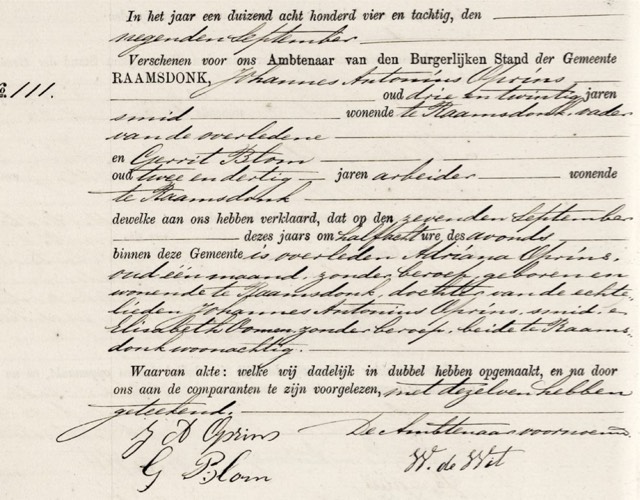 In het jaar een duizend acht honderd vier en tachtig, den
negenden September
Verschenen voor ons Ambtenaar van den Burgerlijken Stand der Gemeente
RAAMSDONK, Johannes Antonius Oprins
No. 111.
oud drie en twintig jaren
smid wonende te Raamsdonk, vader
van de overledene
en Gerrit Blom
oud twee en dertig jaren arbeider wonende
te Raamsdonk
dewelke aan ons hebben verklaard, dat op den zevenden September
dezes jaars om half acht ure des avonds
binnen deze Gemeente is overleden Adriana Oprins,
oud één maand, zonder beroep, geboren en
wonende te Raamsdonk, dochter van de echte-
lieden Johannes Antonius Oprins, smid, en
Elisabeth Oomen, zonder beroep, beide te Raams-
donk woonachtig.
Waarvan akte: welke wij dadelijk in dubbel hebben opgemaakt, en na door
ons aan de comparanten te zijn voorgelezen, met dezelven hebben
geteekend.
J A Oprins De Ambtenaar voornoemd
G Blom W. de Wit